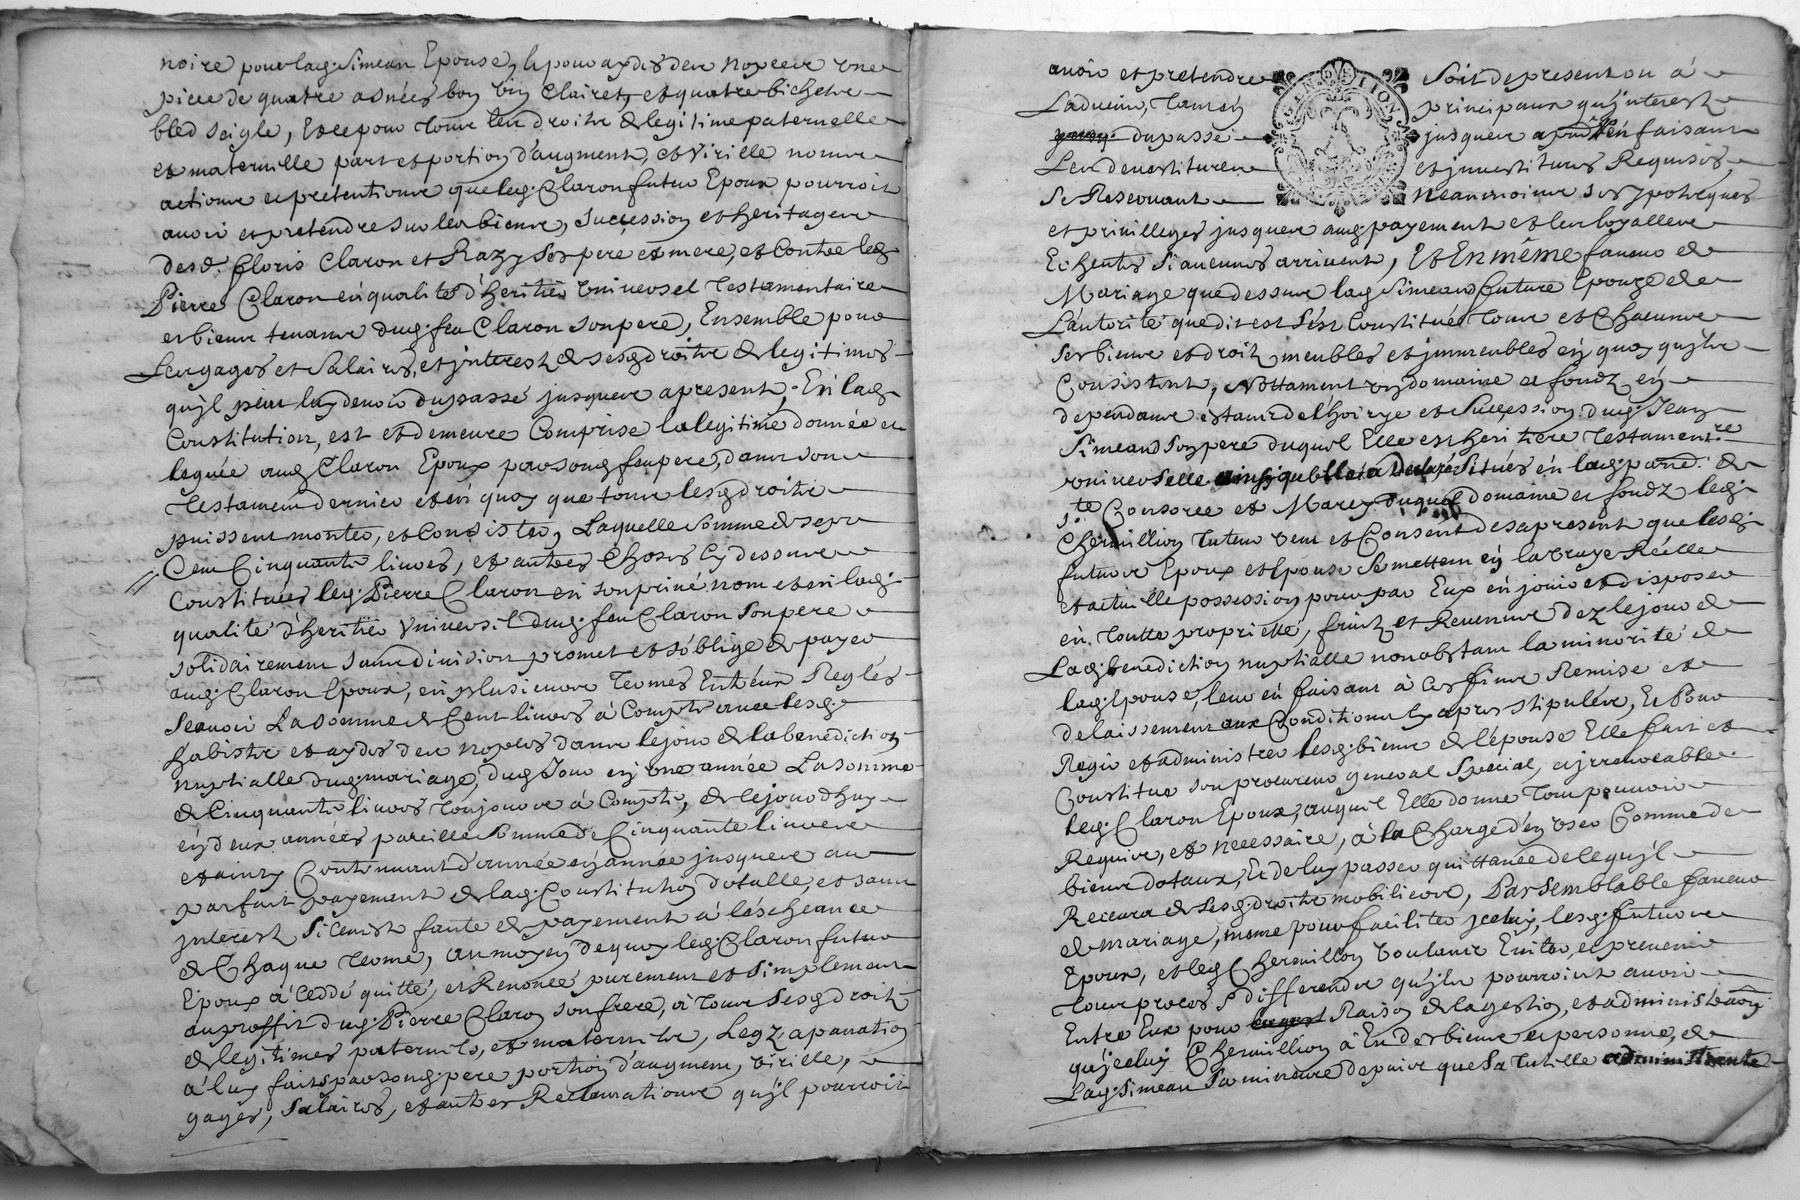 noire pour lad. Simean Epouse, & pour aydes de nopces une
piece de quatre asnées bon vin Clairet, et quatre bichets
bled seigle, Et ce pour tous les droits & legitime paternelle
et maternelle part et portion d'augment, et virille noms
actions et pretentions que led. Claron futur Epoux pourroit
avoir et pretendre sur les biens, succession et heritages
desd. Floris Claron et Razy ses pere et mere, et Contre led.
Pierre Claron en qualité d'heritier universel testamentaire
et bien tenant dud. feu Claron son pere, Ensemble pour
Les gages et salaires, et jnterest de sesd. droits & legitimes
qu'jl peut luy devoir du passé jusques a present, En lad.
Constitution, est et demeure Comprise la legitime donnée et
leguée aud. Claron Epoux par sond. feu pere, dans son
testament dernier et en quoy que tous lesd. droits
puissent monter, et Consister, Laquelle somme de sept
Cent Cinquante livres, et autres Choses cy dessus
Constituées led. Pierre Claron en son privé nom et en lad.
qualité d'heritier universel dud. feu Claron son pere
solidairement sans division promet et s'oblige de payer
aud. Claron Epoux, en plusieurs termes Entr'eux Reglés
Scavoir La somme de Cent livres à Compte avec lesd.
habits et aydes de nopces dans le jour de la benediction
nuptialle dud. mariage, dud. Jour en une année La somme
de Cinquante livres toujours à Compte, & le jour d'huy
en deux années pareille somme de Cinquante livres
et ainsy Continuant d'année en année jusques au
parfait payement de lad. Constitution dotalle, et sans
jnterest si ce n'est faute de payement à l'escheance
de Chaque terme, au moyen de quoy led. Claron futur
Epoux à Ceddé quitté, et Renoncé purement et simplement
au proffit dud. Pierre Claron son frere, à tous sesd. droits
de legitimes paternels, et maternels, Legz a panation
à luy faits par sond. pere portion d'augment, virille,
gages, salaires, et autres Reclamations qu'jl pourroit
avoir et pretendre soit de present ou à
Ladvenir, tant en principaux qu'jnterest
du passé jusques a present en faisant
Les devestitures et jnvestitures Requises,
Se Reservant Neanmoins ses ypotheques
et privilleges jusques aud. payement et les loyalles
Echeutes si aucunes arrivent, Et En même faveur de
Mariage que dessus lad. Simeand future Epouze de
L'autorité que dit est s'est Constituée tous et Chacuns
ses biens et droits meubles et jmmeubles en quoy qu'jls
Consistent, Nottament un domaine et fondz en
dependants estants de l'hoirye et Succession dud. Jean
Simeand son pere duquel Elle est heritiere testamentre
universelle situés en lad. parr. de
ste Consorce et Marcy duquel domaine et fondz led.
Chermillion tuteur veut et Consent des a present que lesd.
futurs Epoux et Epouse se mettent en la vraye Réelle
et actuelle possession pour par Eux en jouir et disposer
en toutte proprietté, fruitz et Revenus dez le jour de
Lad. benediction nuptialle nonobstant la minorité de
lad. Epouse, leur en faisant à ces fins Remise et
delaissement aux Conditions Cy apres stipulées, Et Pour
Regir et administrer lesd. biens de l'épouse Elle fait et
Constitue son procureur general Special, et jrrevocable
led. Claron Epoux, auquel Elle donne tout pouvoir
Requis, et necessaire, à la Charge d'en user Comme de
biens dotaux, Et de luy passer quittance de ce qu'jl
Recevra de sesd. droits mobiliers, Par semblable faveur
de mariage, meme pour faciliter jceluy, lesd. futurs
Epoux, et led. Chermillion voulants Eviter, et prevenir
tous proces & differends qu'jls pourroient avoir
Entre Eux pour Raison de la gestion, et administration
qu'jceluy Chermillion à Eu des biens et personne, de
Lad. Simean sa mineure depuis que sa tutelle administrante